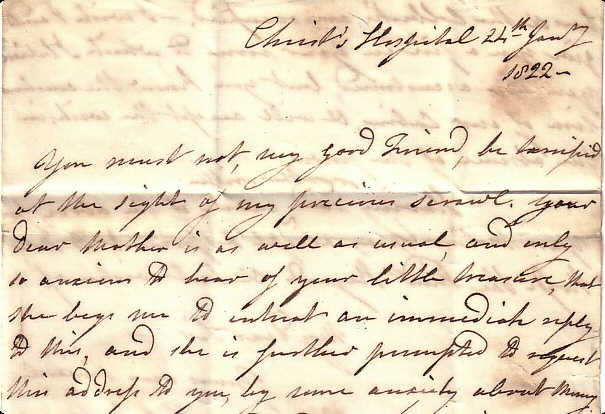 Christ's Hospital 24th Jany
1822 -
You must not, my good Friend, be terrified
at the sight of my precious scrawl. Your
dear Mother is as well as usual, and only
so anxious to hear of your little treasure, that
she begs me to intreat an immediate reply
to this, and she is further prompted to request
this address to you, by some anxiety about